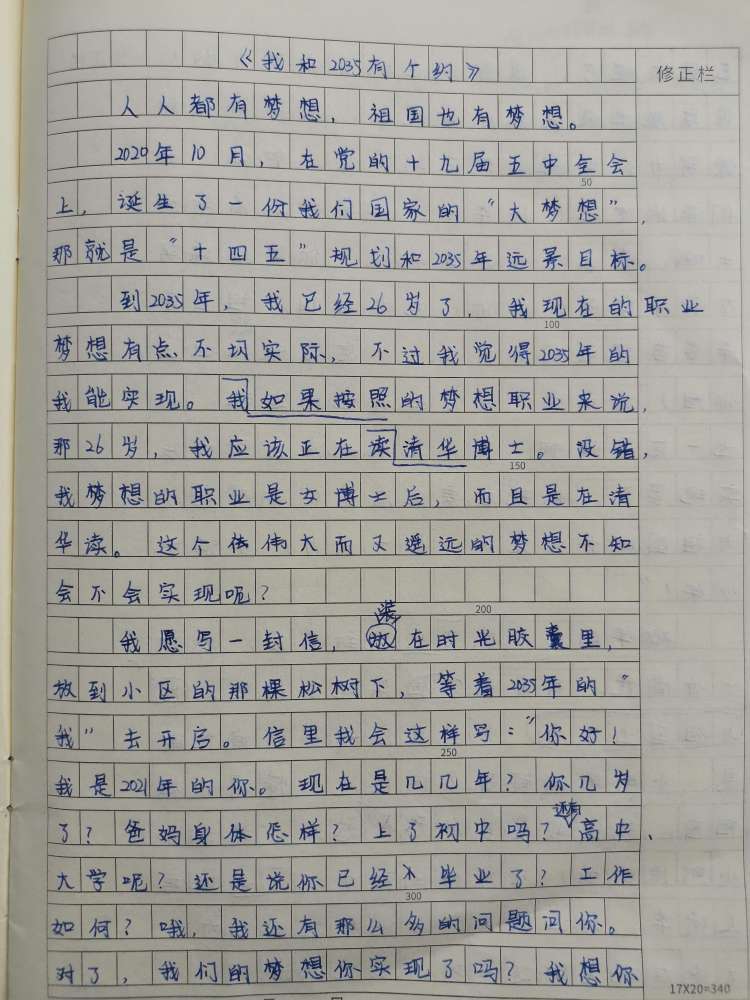 《我和2035有个约》
修正栏
人人都有梦想，祖国也有梦想。
2020年10月，在党的十九届五中全会
50
上，诞生了一份我们国家的“大梦想”，
那就是“十四五”规划和2035年远景目标。
到2035年，我已经26岁了，我现在的职业
100
梦想有点不切实际，不过我觉得2035年的
我能实现。我如果按照的梦想职业来说，
那26岁，我应该正在读清华博士。没错，
150
我梦想的职业是女博士后，而且是在清
华读。这个伟大而又遥远的梦想不知
会不会实现呢？
200
我愿写一封信，装在时光胶囊里，
放到小区的那棵松树下，等着2035年的“
我”去开启。信里我会这样写：“你好！
250
我是2021年的你。现在是几几年？你几岁
了？爸妈身体怎样？上了初中吗？还有高中、
大学呢？还是说你已经毕业了？工作
300
如何？哦，我还有那么多的问题问你。
对了，我们的梦想你实现了吗？我想你
17X20=340